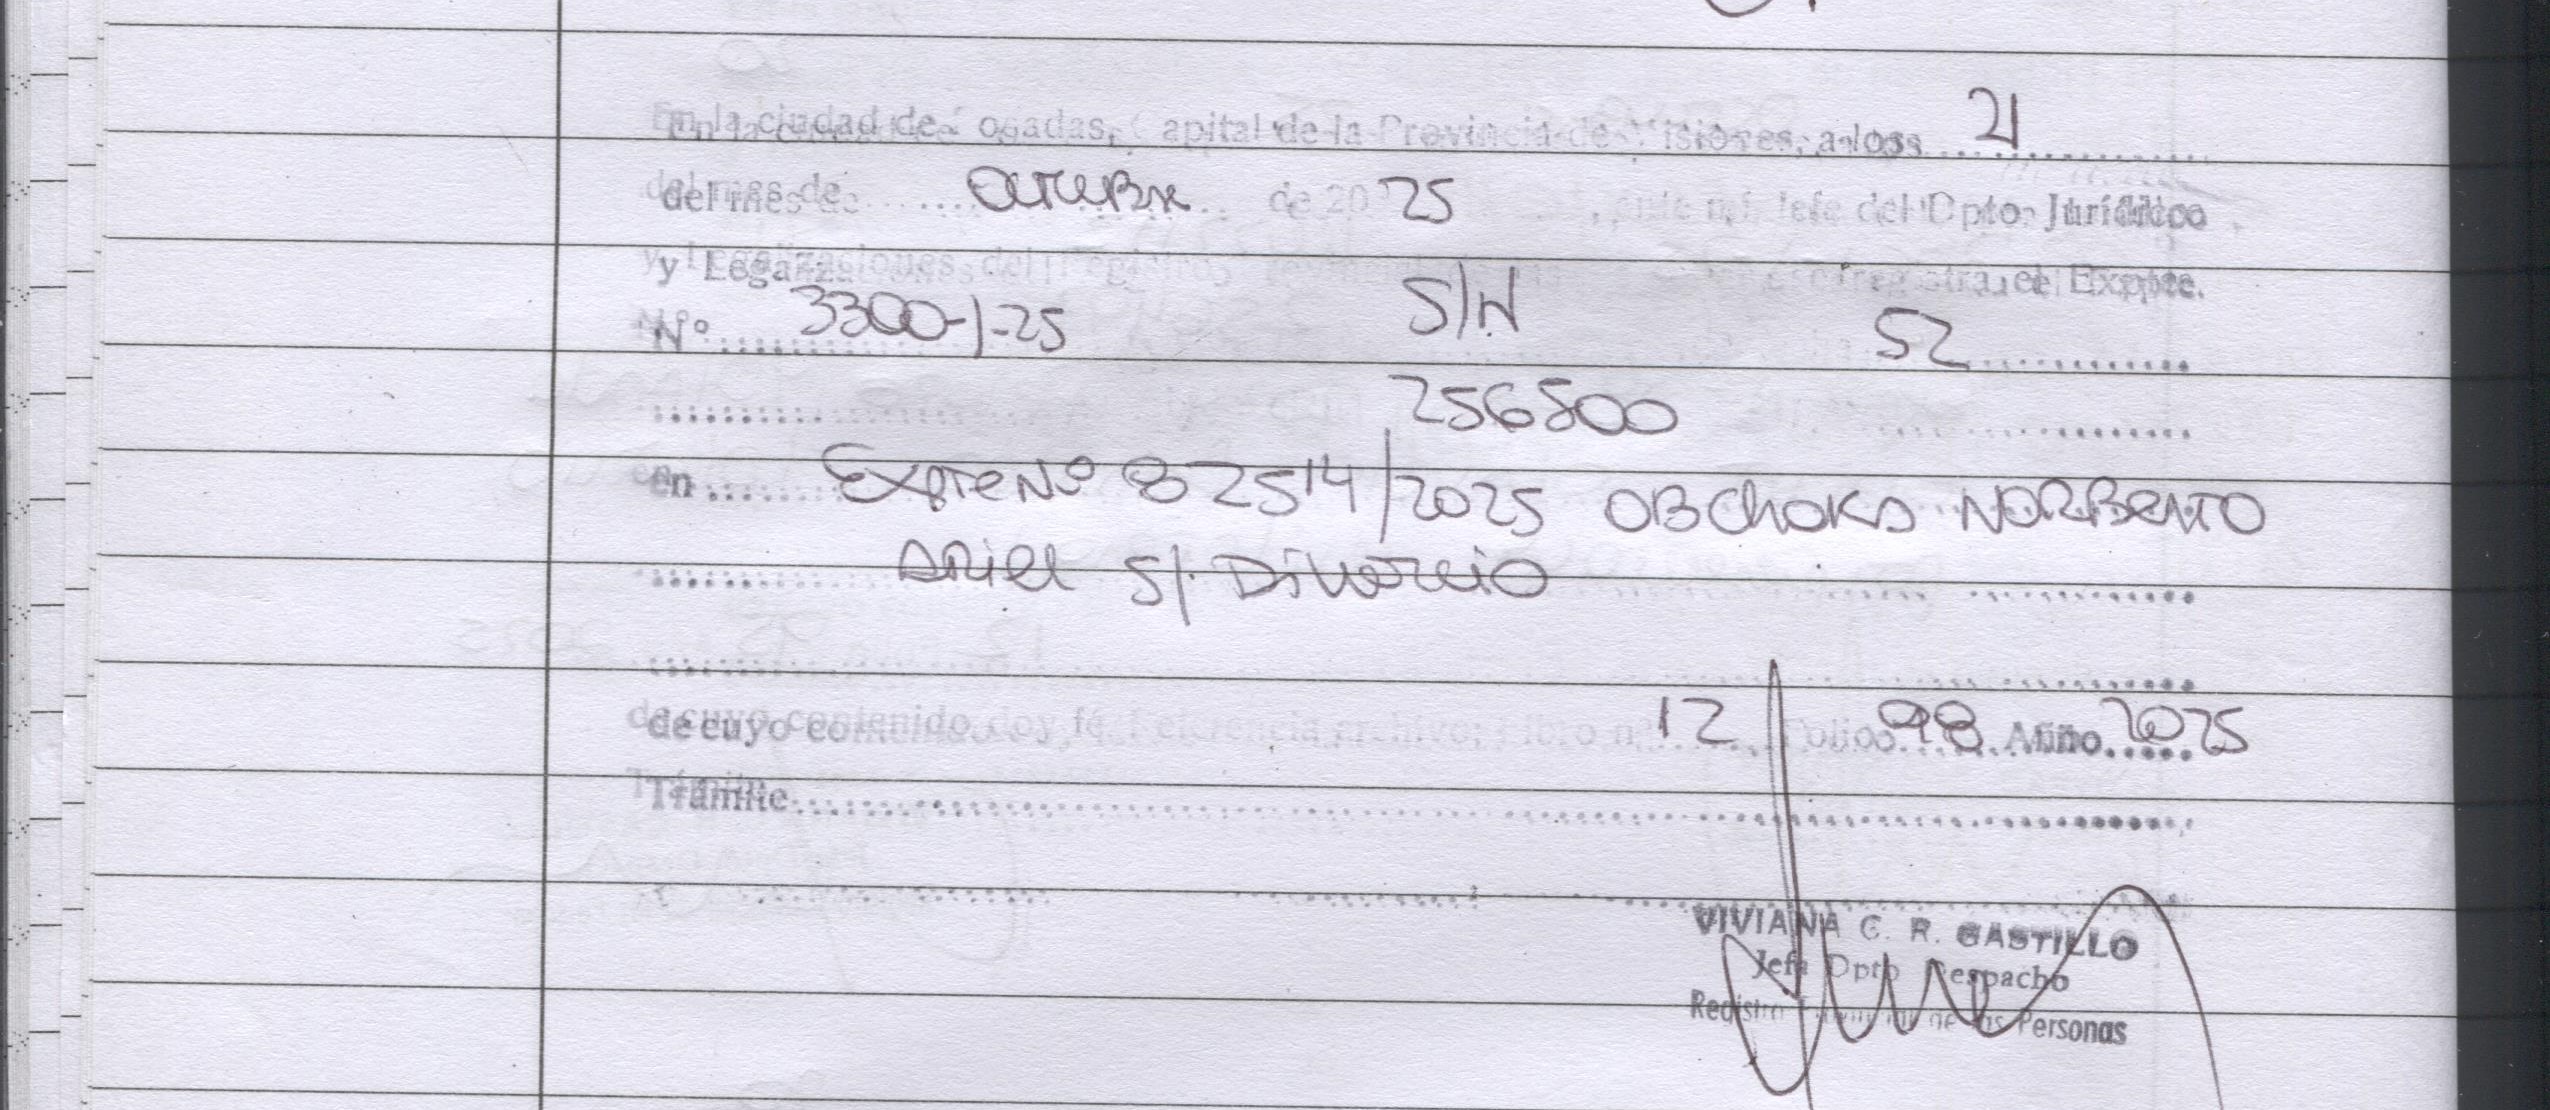 En la ciudad de osadas, Capital de la Provincia de isiones, a los 21
del mes de OCTUBRE de 20 25, ante mí Jefe del Dpto. Jurídico
y Legalizaciones del Registro registra el Expte.
Nº 3300-1-25 S/N 52
256800
en Expte Nº 82514/2025 OBCHOKA NORBERTO
ARIEL S/ DIVORCIO
de cuyo contenido doy fé, Referencia archivo; libro nº 12 Folio 98 Año 2025
Trámite
VIVIANA C. R. CASTILLO
Jefa Dpto Despacho
Registro Provincial de las Personas